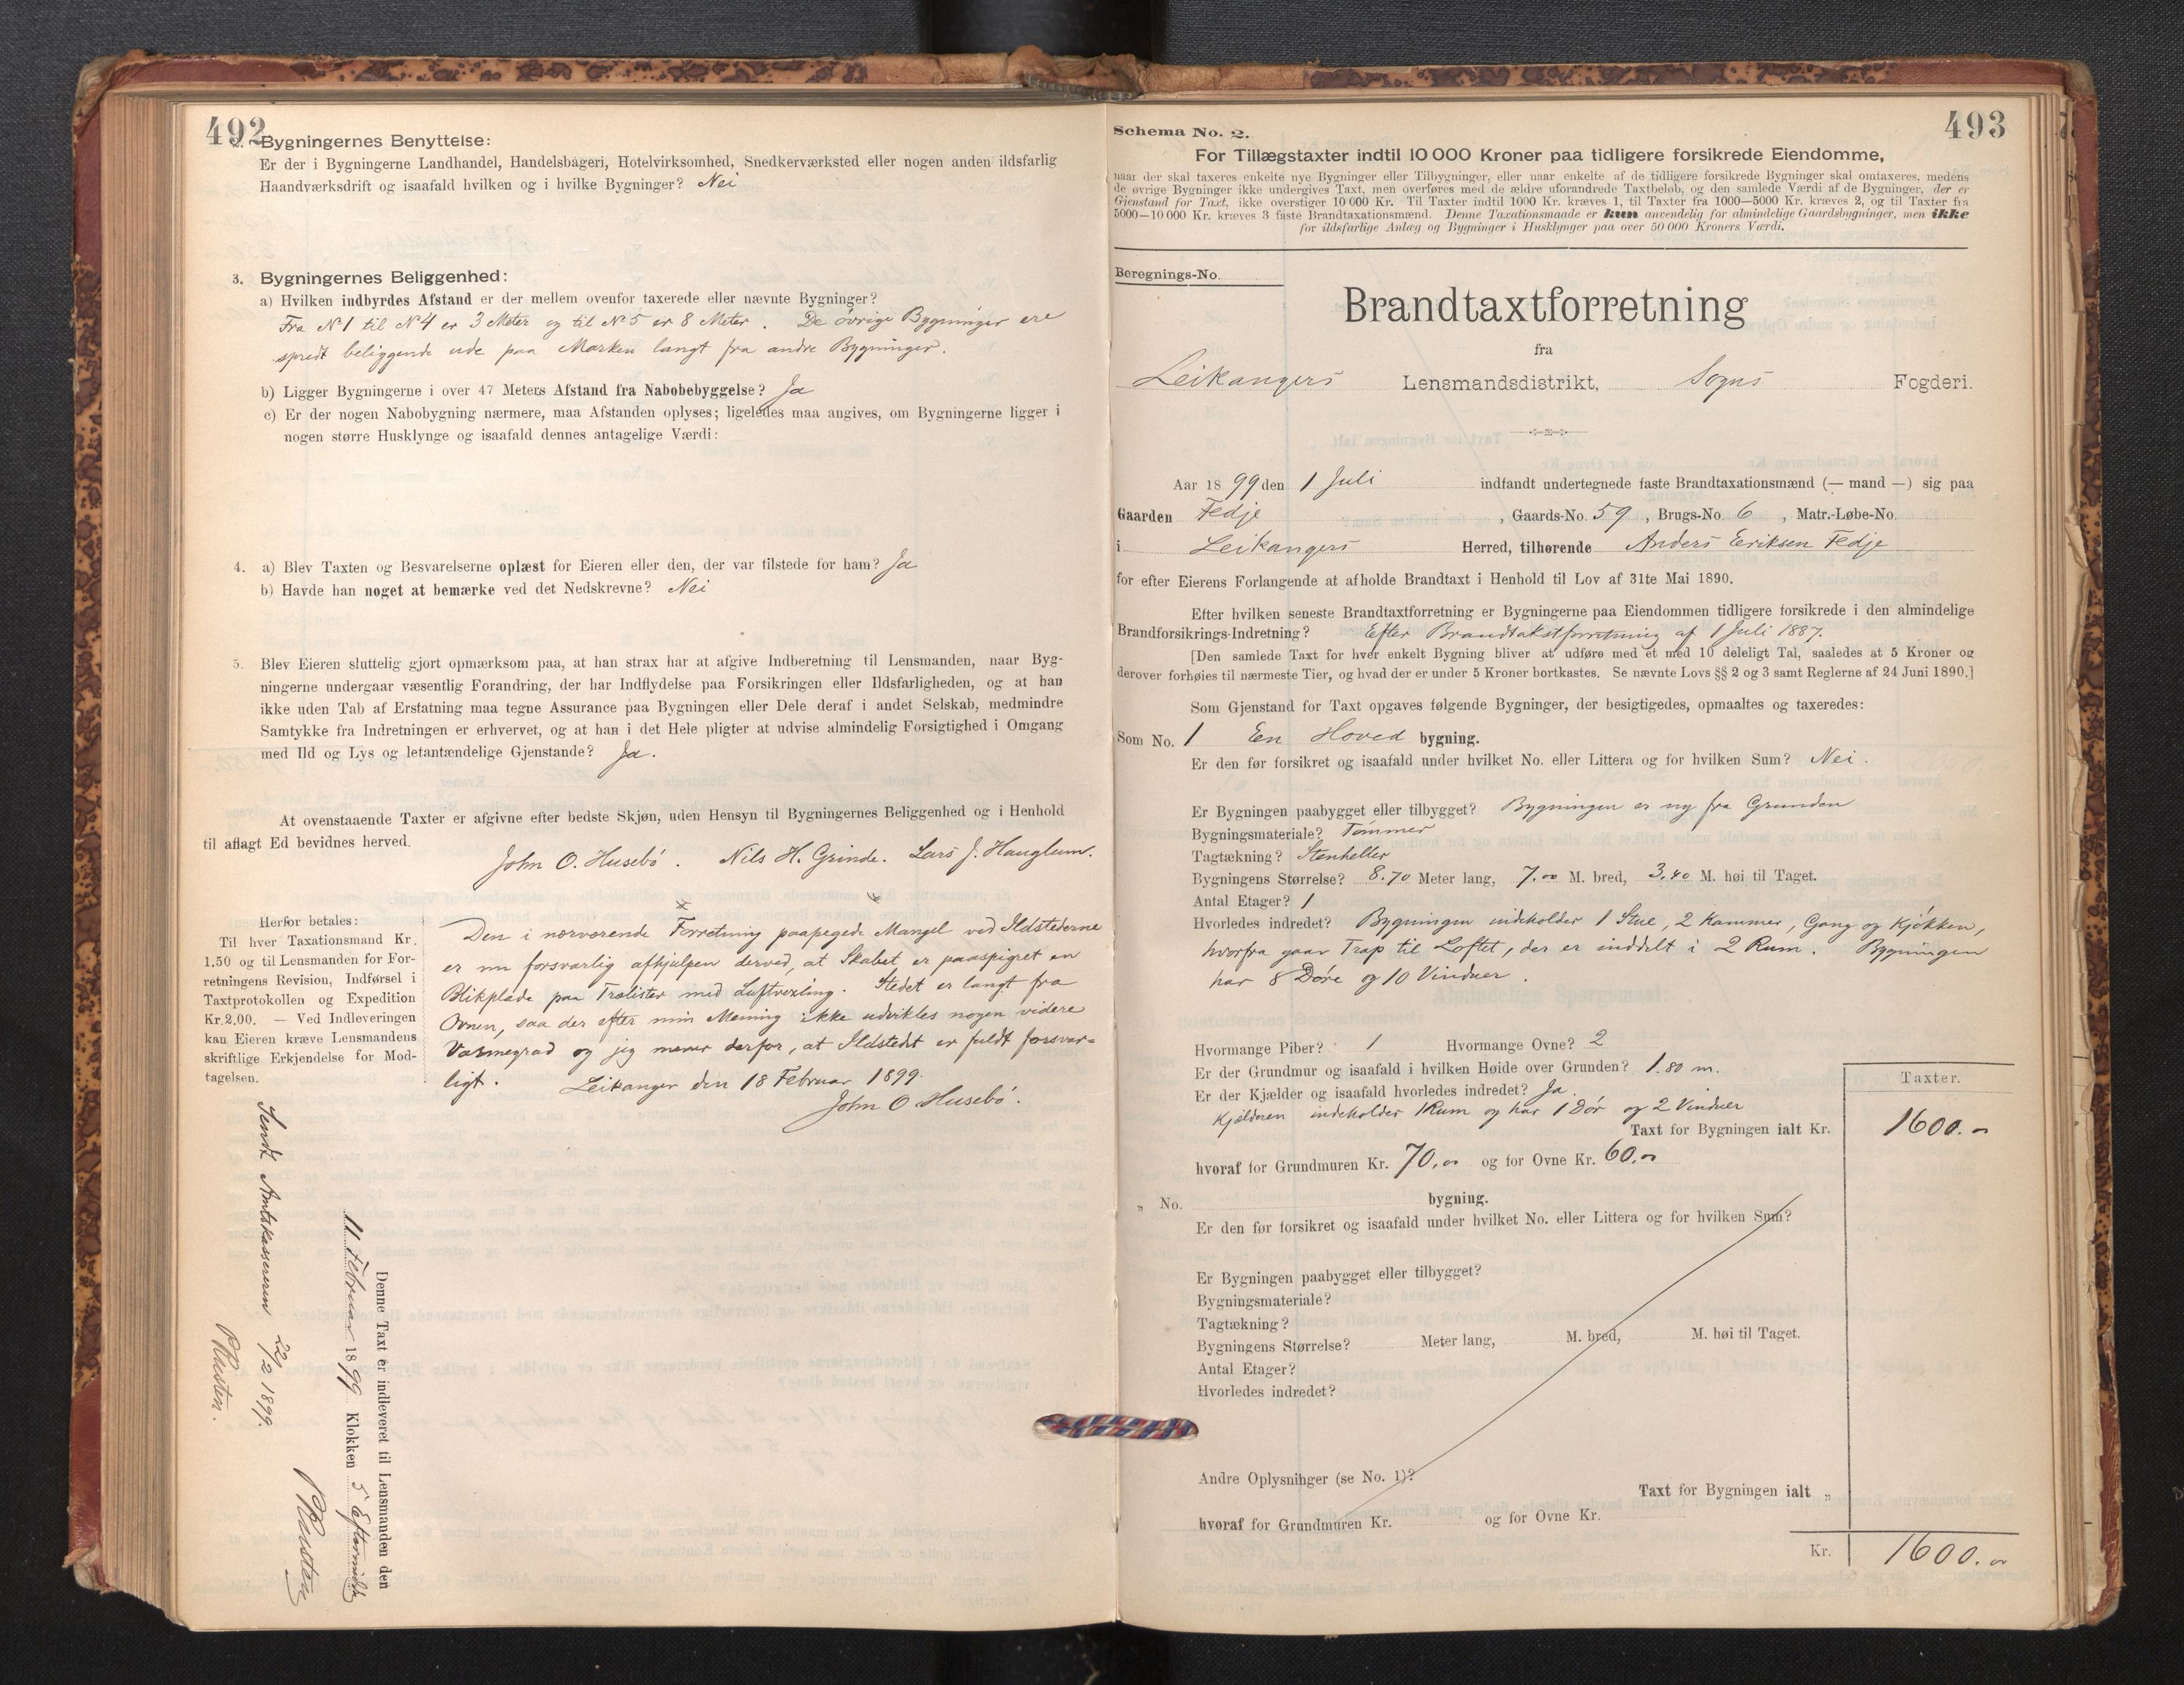 492
Bygningernes Benyttelse:
Er der i Bygningerne Landhandel, Handelsbageri, Hotelvirksomhed, Snedkerværksted eller nogen anden ildsfarlig
Haandværksdrift og isaafald hvilken og i hvilke Bygninger? Nei
3. Bygningernes Beliggenhed:
a) Hvilken indbyrdes Afstand er der mellem ovenfor taxerede eller nævnte Bygninger?
Fra No 1 til No 4 er 3 Meter og til No 5 er 8 Meter. De övrige Bygninger ere
spredt beliggende ude paa Marken langt fra andre Bygninger.
b) Ligger Bygningerne i over 47 Meters Afstand fra Nabobebyggelse? Ja
c) Er der nogen Nabobygning nærmere, maa Afstanden oplyses; ligeledes maa angives, om Bygningerne ligger i
nogen større Husklynge og isaafald dennes antagelige Værdi:
4. a) Blev Taxten og Besvarelserne oplæst for Eieren eller den, der var tilstede for ham? Ja
b) Havde han noget at bemærke ved det Nedskrevne? Nei
5. Blev Eieren sluttelig gjort opmærksom paa, at han strax har at afgive Indberetning til Lensmanden, naar Byg-
ningerne undergaar væsentlig Forandring, der har Indflydelse paa Forsikringen eller Ildsfarligheden, og at han
ikke uden Tab af Erstatning maa tegne Assurance paa Bygningen eller Dele deraf i andet Selskab, medmindre
Samtykke fra Indretningen er erhvervet, og at han i det Hele pligter at udvise almindelig Forsigtighed i Omgang
med Ild og Lys og letantændelige Gjenstande? Ja.
At ovenstaaende Taxter er afgivne efter bedste Skjøn, uden Hensyn til Bygningernes Beliggenhed og i Henhold
til aflagt Ed bevidnes herved.
John O. Husebö. Nils H. Grinde. Lars J. Hauglum.
Herfor betales:
Til hver Taxationsmand Kr.
1.50 og til Lensmanden for For-
retningens Revision, Indførsel i
Taxtprotokollen og Expedition
Kr. 2.00. — Ved Indleveringen
kan Eieren kræve Lensmandens
skriftlige Erkjendelse for Mod-
tagelsen.
Den i nærværende Forretning paapegede Mangel ved Ildstederne
er nu forsvarlig afhjulpen derved, at Skabet er paaspigret en
Blikplade paa Trælister med Luftvexling. Stedet er langt fra
Ovnen, saa der efter min Mening ikke udvikles nogen videre
Varmegrad og jeg mener derfor, at Ildstedet er fuldt forsvar-
ligt. Leikanger den 18 Februar 1899.
John O Husebö.
Denne Taxt er indleveret til Lensmanden den
11 Februar 1899 Klokken 5 Eftermidd.
Sendt Amtskassereren 22/2 1899.
493
Schema No. 2.
For Tillægstaxter indtil 10 000 Kroner paa tidligere forsikrede Eiendomme,
naar der skal taxeres enkelte nye Bygninger eller Tilbygninger, eller naar enkelte af de tidligere forsikrede Bygninger skal omtaxeres, medens
de øvrige Bygninger ikke undergives Taxt, men overføres med de ældre uforandrede Taxtbeløb, og den samlede Værdi af de Bygninger, der er
Gjenstand for Taxt, ikke overstiger 10 000 Kr. Til Taxter indtil 1000 Kr. kræves 1, til Taxter fra 1000—5000 Kr. kræves 2, og til Taxter fra
5000—10 000 Kr. kræves 3 faste Brandtaxationsmænd. Denne Taxationsmaade er kun anvendelig for almindelige Gaardsbygninger, men ikke
for ildsfarlige Anlæg og Bygninger i Husklynger paa over 50 000 Kroners Værdi.
Beregnings-No.
Brandtaxtforretning
fra
Leikangers Lensmandsdistrikt, Sogns Fogderi.
Aar 1899 den 1 Juli indfandt undertegnede faste Brandtaxationsmænd (— mand —) sig paa
Gaarden Fedje, Gaards-No. 59, Brugs-No. 6, Matr.-Løbe-No.
i Leikangers Herred, tilhørende Anders Eriksen Fedje
for efter Eierens Forlangende at afholde Brandtaxt i Henhold til Lov af 31te Mai 1890.
Efter hvilken seneste Brandtaxtforretning er Bygningerne paa Eiendommen tidligere forsikrede i den almindelige
Brandforsikrings-Indretning? Efter Brandtakstforretning af 1 Juli 1887.
[Den samlede Taxt for hver enkelt Bygning bliver at udføre med et med 10 deleligt Tal, saaledes at 5 Kroner og
derover forhøies til nærmeste Tier, og hvad der er under 5 Kroner bortkastes. Se nævnte Lovs §§ 2 og 3 samt Reglerne af 24 Juni 1890.]
Som Gjenstand for Taxt opgaves følgende Bygninger, der besigtigedes, opmaaltes og taxeredes:
Som No. 1 En Hoved bygning.
Er den før forsikret og isaafald under hvilket No. eller Littera og for hvilken Sum? Nei.
Er Bygningen paabygget eller tilbygget? Bygningen er ny fra Grunden
Bygningsmateriale? Tömmer
Tagtækning? Stenheller
Bygningens Størrelse? 8.70 Meter lang, 7.00 M. bred, 3.40 M. høi til Taget.
Antal Etager? 1
Hvorledes indredet? Bygningen indeholder 1 Stue, 2 Kammer, Gang og Kjökken,
hvorfra gaar Trap til Loftet, der er inddelt i 2 Rum. Bygningen
har 8 Döre og 10 Vinduer.
Hvormange Piber? 1 Hvormange Ovne? 2
Er der Grundmur og isaafald i hvilken Høide over Grunden? 1.80 m.
Er der Kjælder og isaafald hvorledes indredet? Ja.
Kjælderen indeholder 1 Rum og har 1 Dör og 2 Vinduer
Taxter.
Taxt for Bygningen ialt Kr. 1600.00
hvoraf for Grundmuren Kr. 70.00 og for Ovne Kr. 60.00
" No. bygning.
Er den før forsikret og isaafald under hvilket No. eller Littera og for hvilken Sum?
Er Bygningen paabygget eller tilbygget?
Bygningsmateriale?
Tagtækning?
Bygningens Størrelse? Meter lang, M. bred, M. høi til Taget.
Antal Etager?
Hvorledes indredet?
Andre Oplysninger (se No. 1)?
Taxt for Bygningen ialt "
hvoraf for Grundmuren Kr. og for Ovne Kr.
Kr. 1600.00